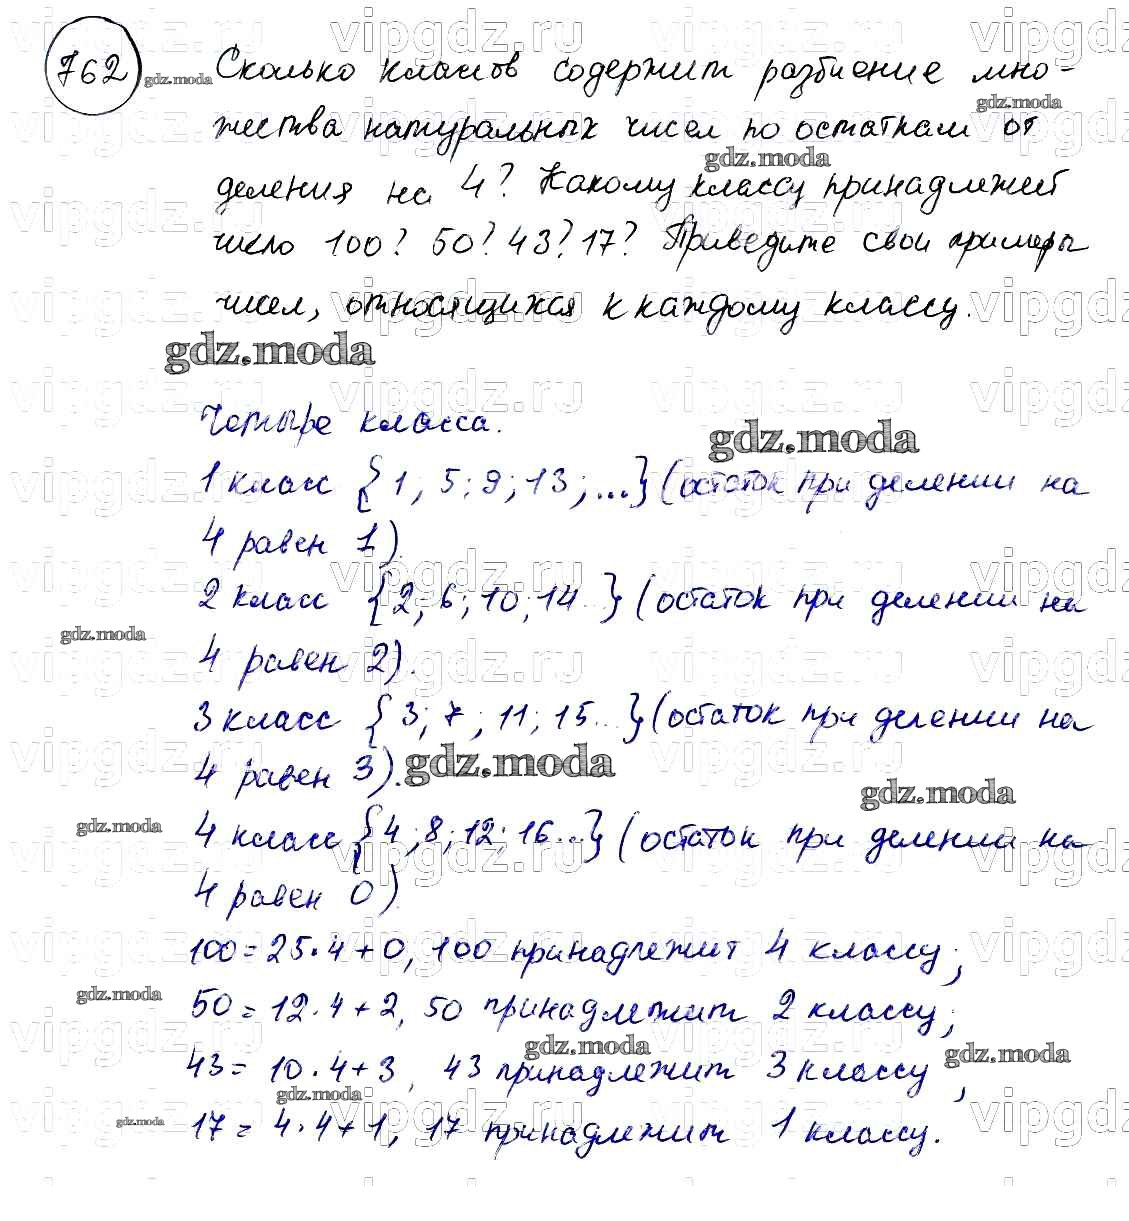 762 Сколько классов содержит разбиение мно-
жества натуральных чисел по остаткам от
деления на 4? Какому классу принадлежит
число 100? 50? 43? 17? Приведите свои примеры
чисел, относящихся к каждому классу.
Четыре класса.
1 класс {1, 5; 9; 13; ...} (остаток при делении на
4 равен 1).
2 класс {2; 6; 10; 14...} (остаток при делении на
4 равен 2).
3 класс {3; 7; 11; 15...} (остаток при делении на
4 равен 3).
4 класс {4; 8; 12; 16...} (остаток при делении на
4 равен 0).
100 = 25·4+0, 100 принадлежит 4 классу;
50 = 12·4+2, 50 принадлежит 2 классу;
43 = 10·4+3, 43 принадлежит 3 классу,
17 = 4·4+1, 17 принадлежит 1 классу.
gdz.moda
vipgdz.ru